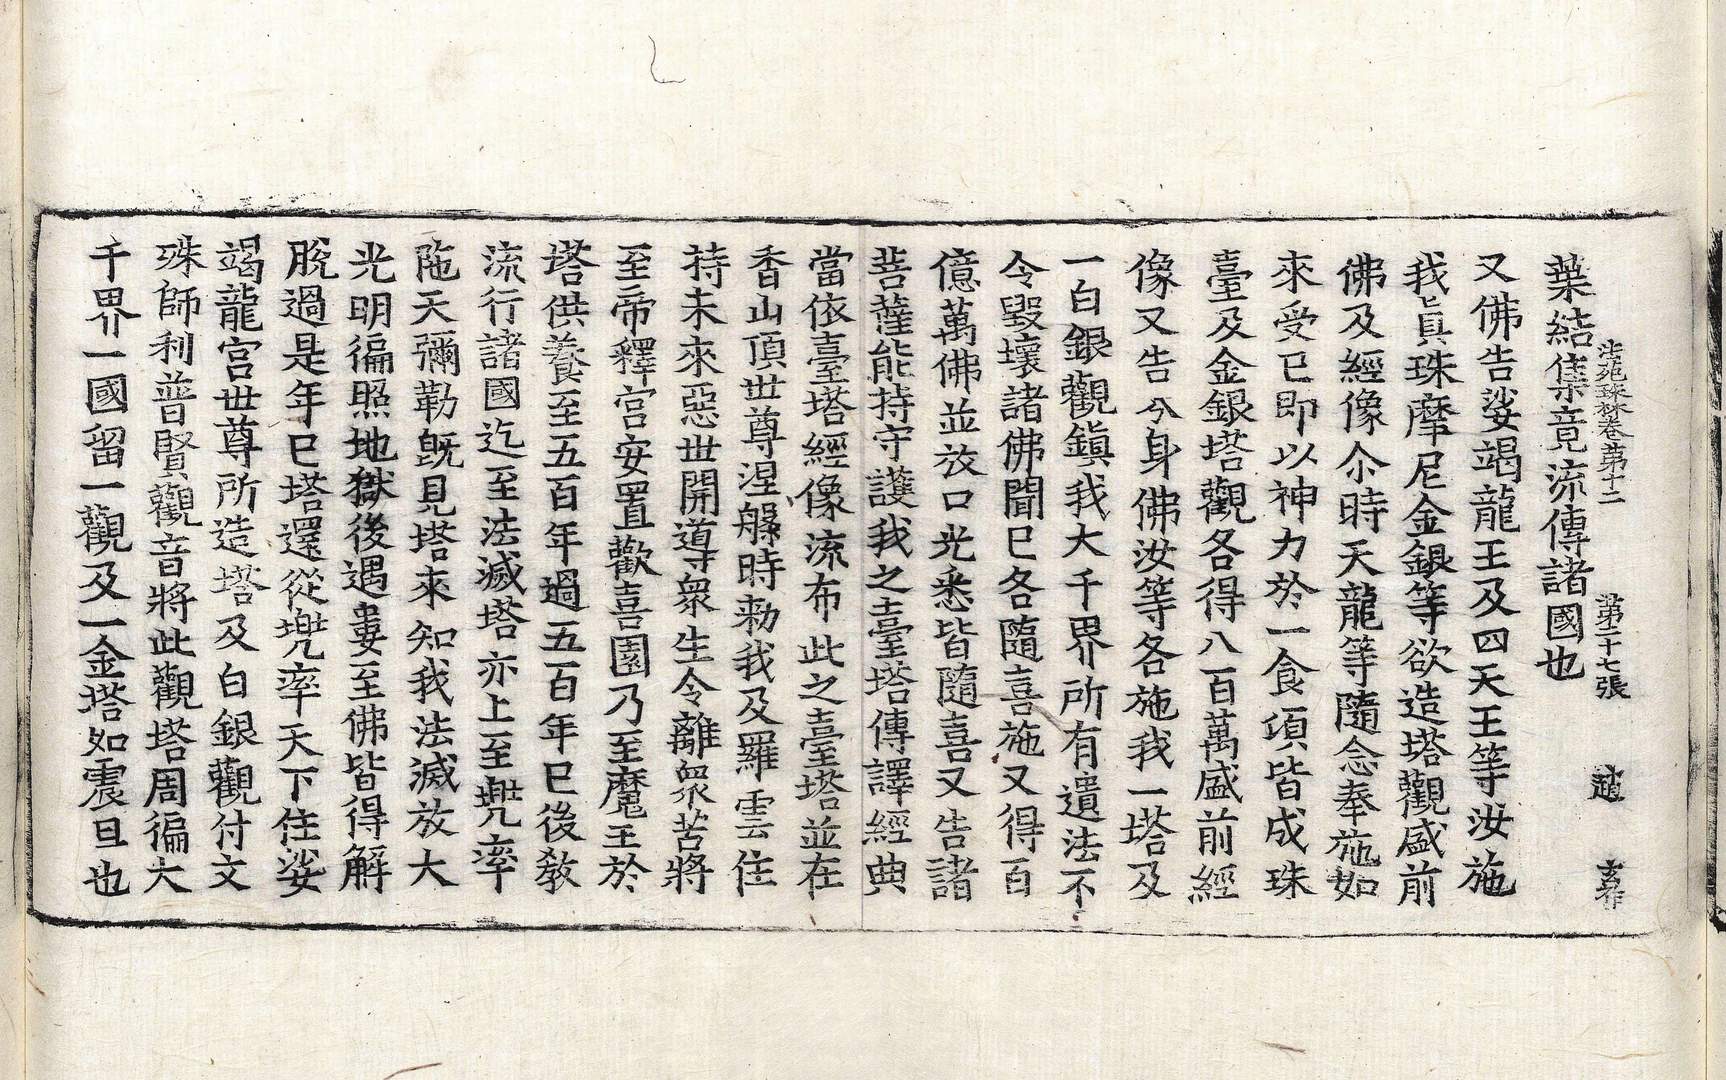 葉結集竟流傳諸國也
法苑珠林卷第十二 第二十七張 趙
又佛告娑竭龍王及四天王等汝施
我眞珠摩尼金銀等欲造塔觀盛前
佛及經像尒時天龍等隨念奉施如
來受已即以神力於一食頃皆成珠
臺及金銀塔觀各得八百萬盛前經
像又告分身佛汝等各施我一塔及
一白銀觀鎭我大千界所有遺法不
令毀壞諸佛聞已各隨喜施又得百
億萬佛並放口光悉皆隨喜又告諸
菩薩能持守護我之臺塔傳譯經典
當依臺塔經像流布此之臺塔並在
香山頂世尊涅槃時勑我及羅雲住
持未來惡世開導衆生令離衆苦將
至帝釋宮安置歡喜園乃至魔王於
塔供養至五百年過五百年已後教
流行諸國迄至法滅塔亦上至兠率
陁天彌勒旣見塔來知我法滅放大
光明徧照地獄後遇婁至佛皆得解
脫過是年已塔還從兠率天下住娑
竭龍宮世尊所造塔及白銀觀付文
殊師利普賢觀音將此觀塔周徧大
千界一國留一觀及一金塔如震旦也